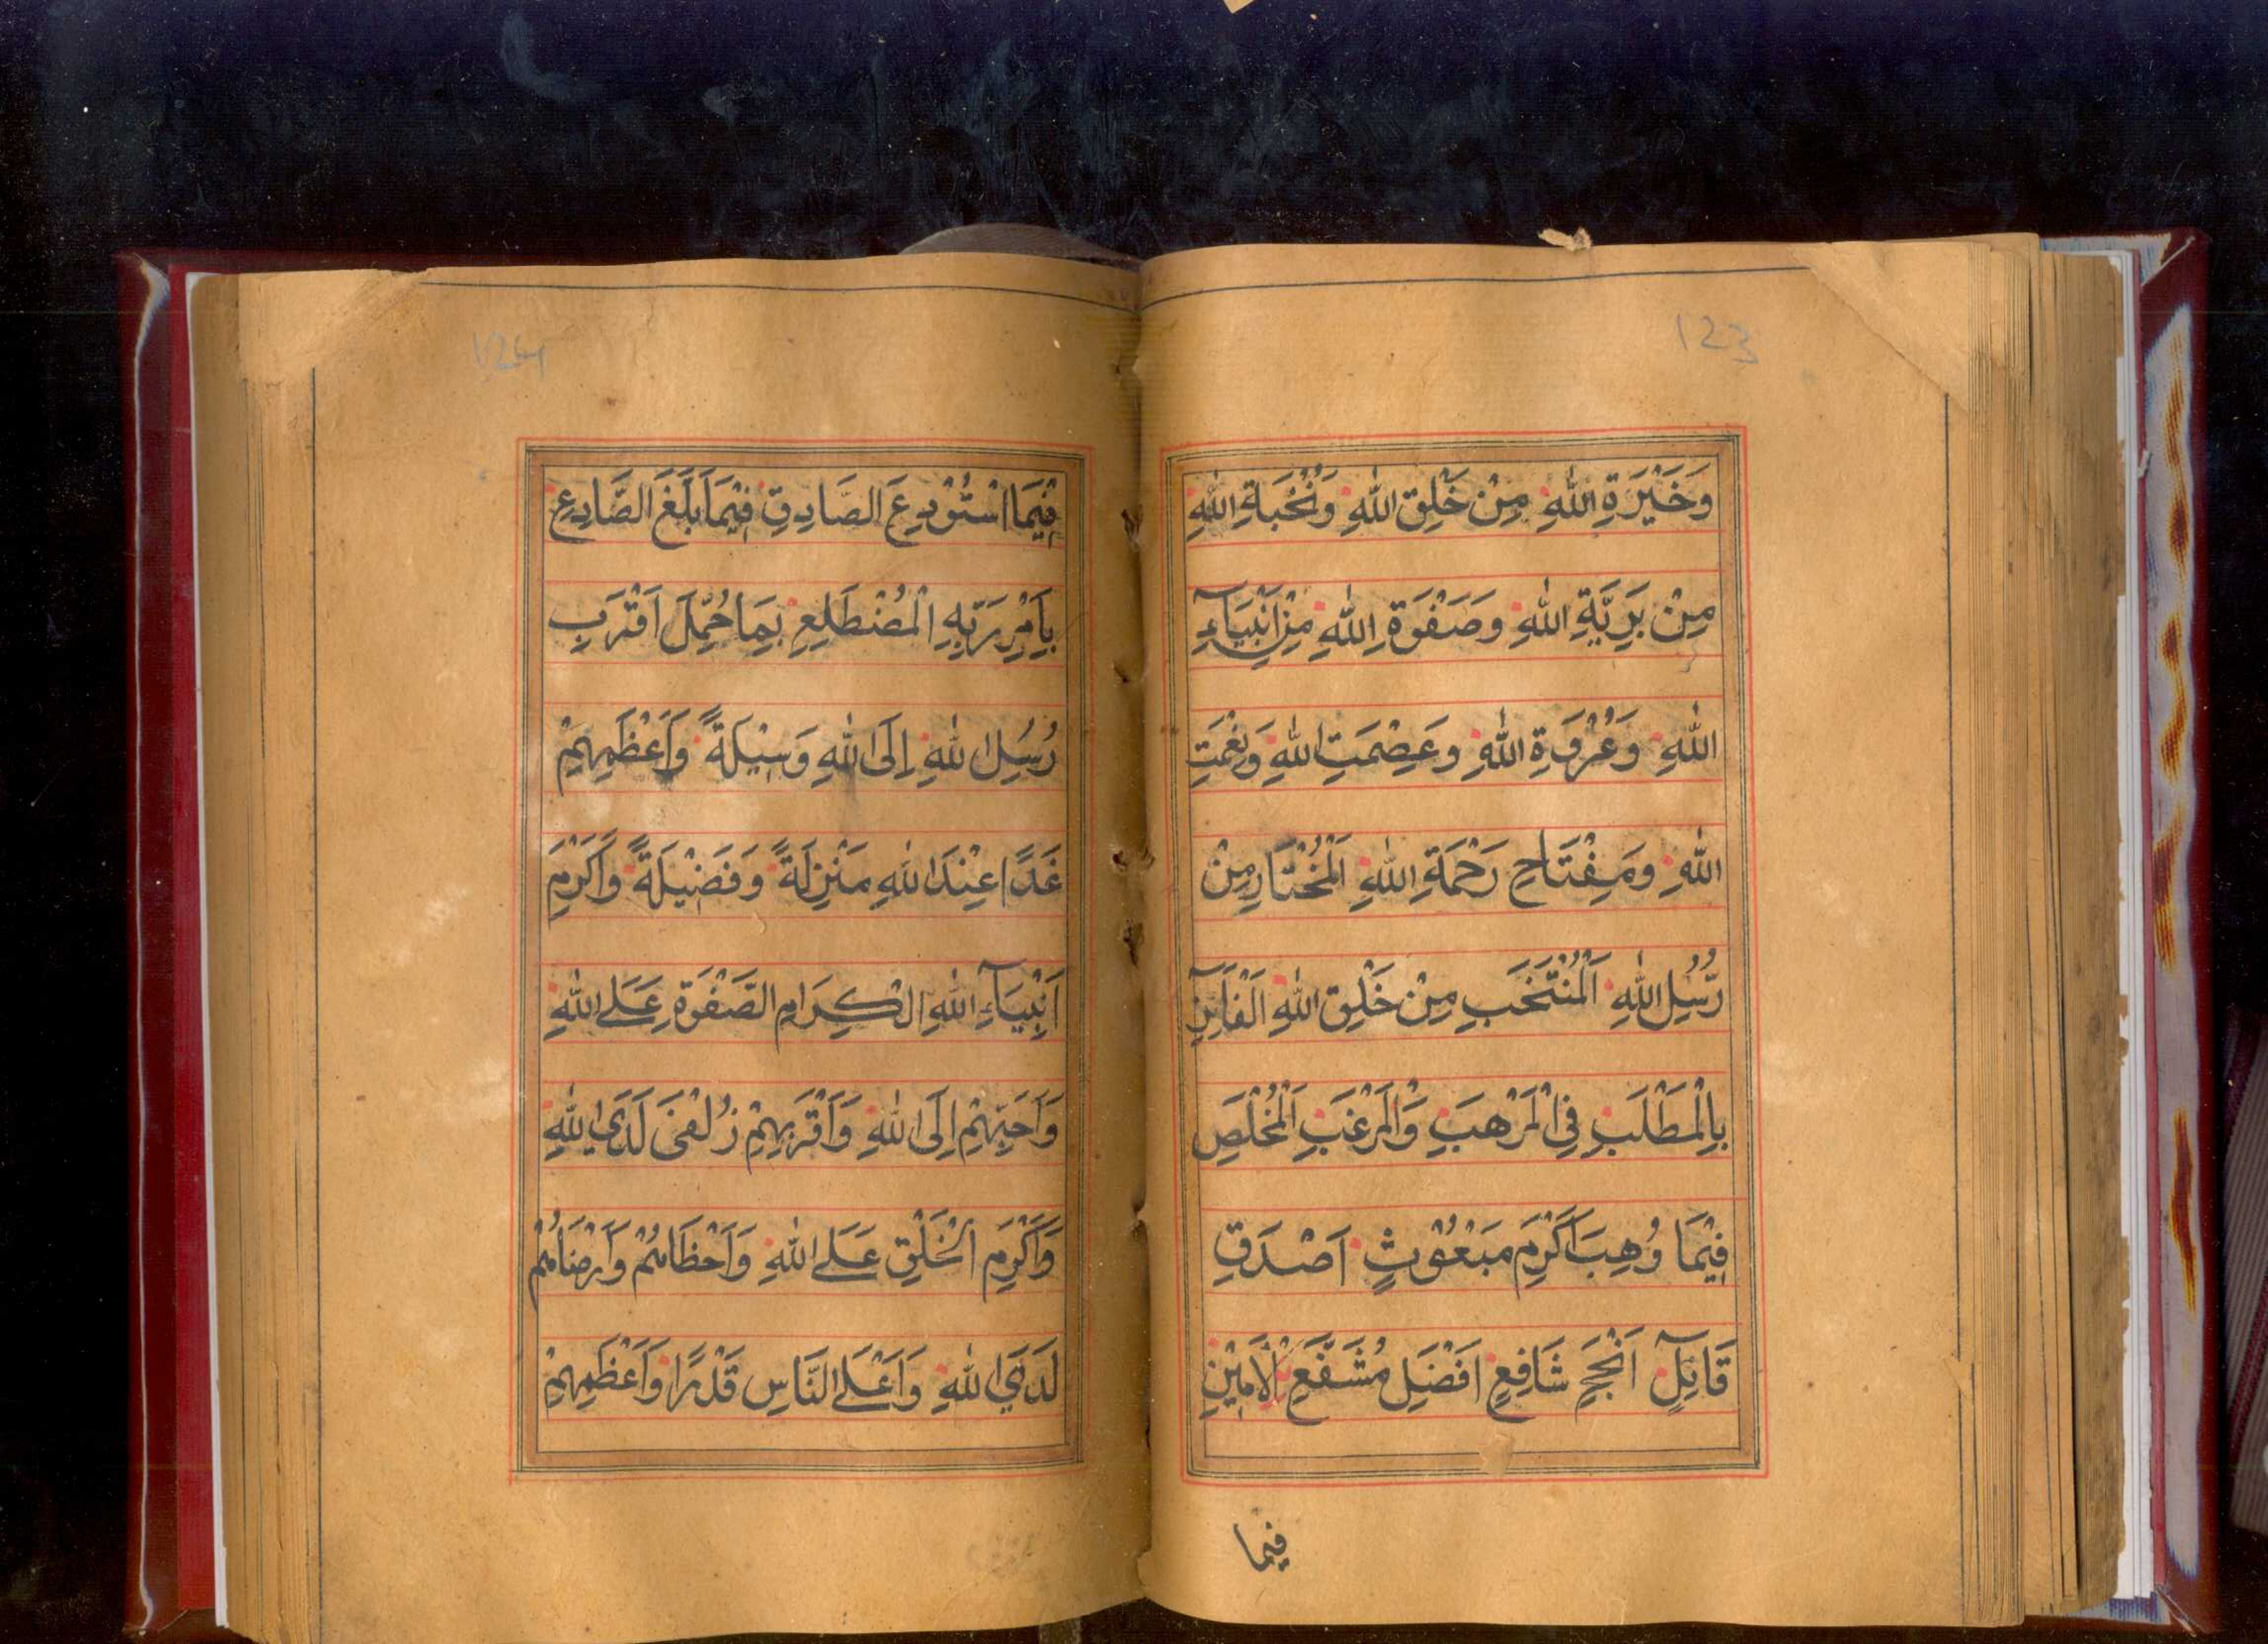 123
وَخَيْرَةِ اللّٰهِ مِنْ خَلْقِ اللّٰهِ وَنُخْبَةِ اللّٰهِ
مِنْ بَرِيَّةِ اللّٰهِ وَصَفْوَةِ اللّٰهِ مِنْ اَنْبِيَآءِ
اللّٰهِ وَعُرْوَةِ اللّٰهِ وَعِصْمَتِ اللّٰهِ وَنِعْمَتِ
اللّٰهِ وَمِفْتَاحِ رَحْمَةِ اللّٰهِ اَلْمُخْتَارِ مِنْ
رُّسُلِ اللّٰهِ اَلْمُنْتَخَبِ مِنْ خَلْقِ اللّٰهِ اَلْفَآئِزِ
بِالْمَطْلَبِ فِي الْمَرْهَبِ وَالْمَرْغَبِ اَلْمُخْلَصِ
فِيْمَا وُهِبَ اَكْرَمِ مَبْعُوْثٍ اَصْدَقِ
قَآئِلٍ اَنْجَحِ شَافِعٍ اَفْضَلِ مُشَفَّعٍ اَلْاَمِيْنِ
فيما
124
فِيْمَا اسْتُوْدِعَ الصَّادِقِ فِيْمَا بَلَّغَ الصَّادِعِ
بِاَمْرِ رَبِّهِ الْمُضْطَلِعِ بِمَا حُمِّلَ اَقْرَبِ
رُسُلِ اللّٰهِ اِلَى اللّٰهِ وَسِيْلَةً وَاَعْظَمِهِمْ
غَدًا عِنْدَ اللّٰهِ مَنْزِلَةً وَفَضِيْلَةً وَاَكْرَمِ
اَنْبِيَآءِ اللّٰهِ الْكِرَامِ الصَّفْوَةِ عَلَى اللّٰهِ
وَاَحَبِّهِمْ اِلَى اللّٰهِ وَاَقْرَبِهِمْ زُلْفٰى لَدَى اللّٰهِ
وَاَكْرَمِ الْخَلْقِ عَلَى اللّٰهِ وَاَحْظَاهُمْ وَاَرْضَاهُمْ
لَدَى اللّٰهِ وَاَعْلَى النَّاسِ قَدْرًا وَاَعْظَمِهِمْ